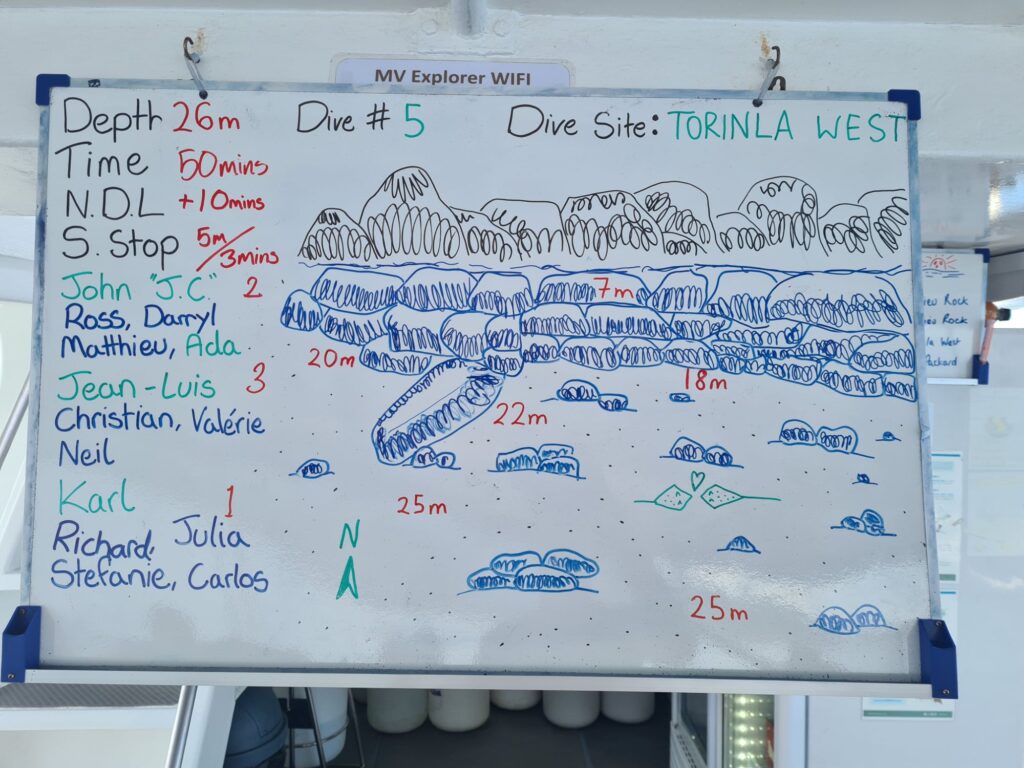 MV Explorer WIFI
Depth 26m
Dive # 5
Dive Site: TORINLA WEST
Time 50mins
N.D.L +10mins
S. Stop 5m/3mins
John "J.C." 2
Ross, Darryl
Matthieu, Ada
Jean-Luis 3
Christian, Valérie
Neil
Karl 1
Richard, Julia
Stefanie, Carlos
7m
20m
18m
22m
25m
N
25m
Rock
Rock
la West
Packard